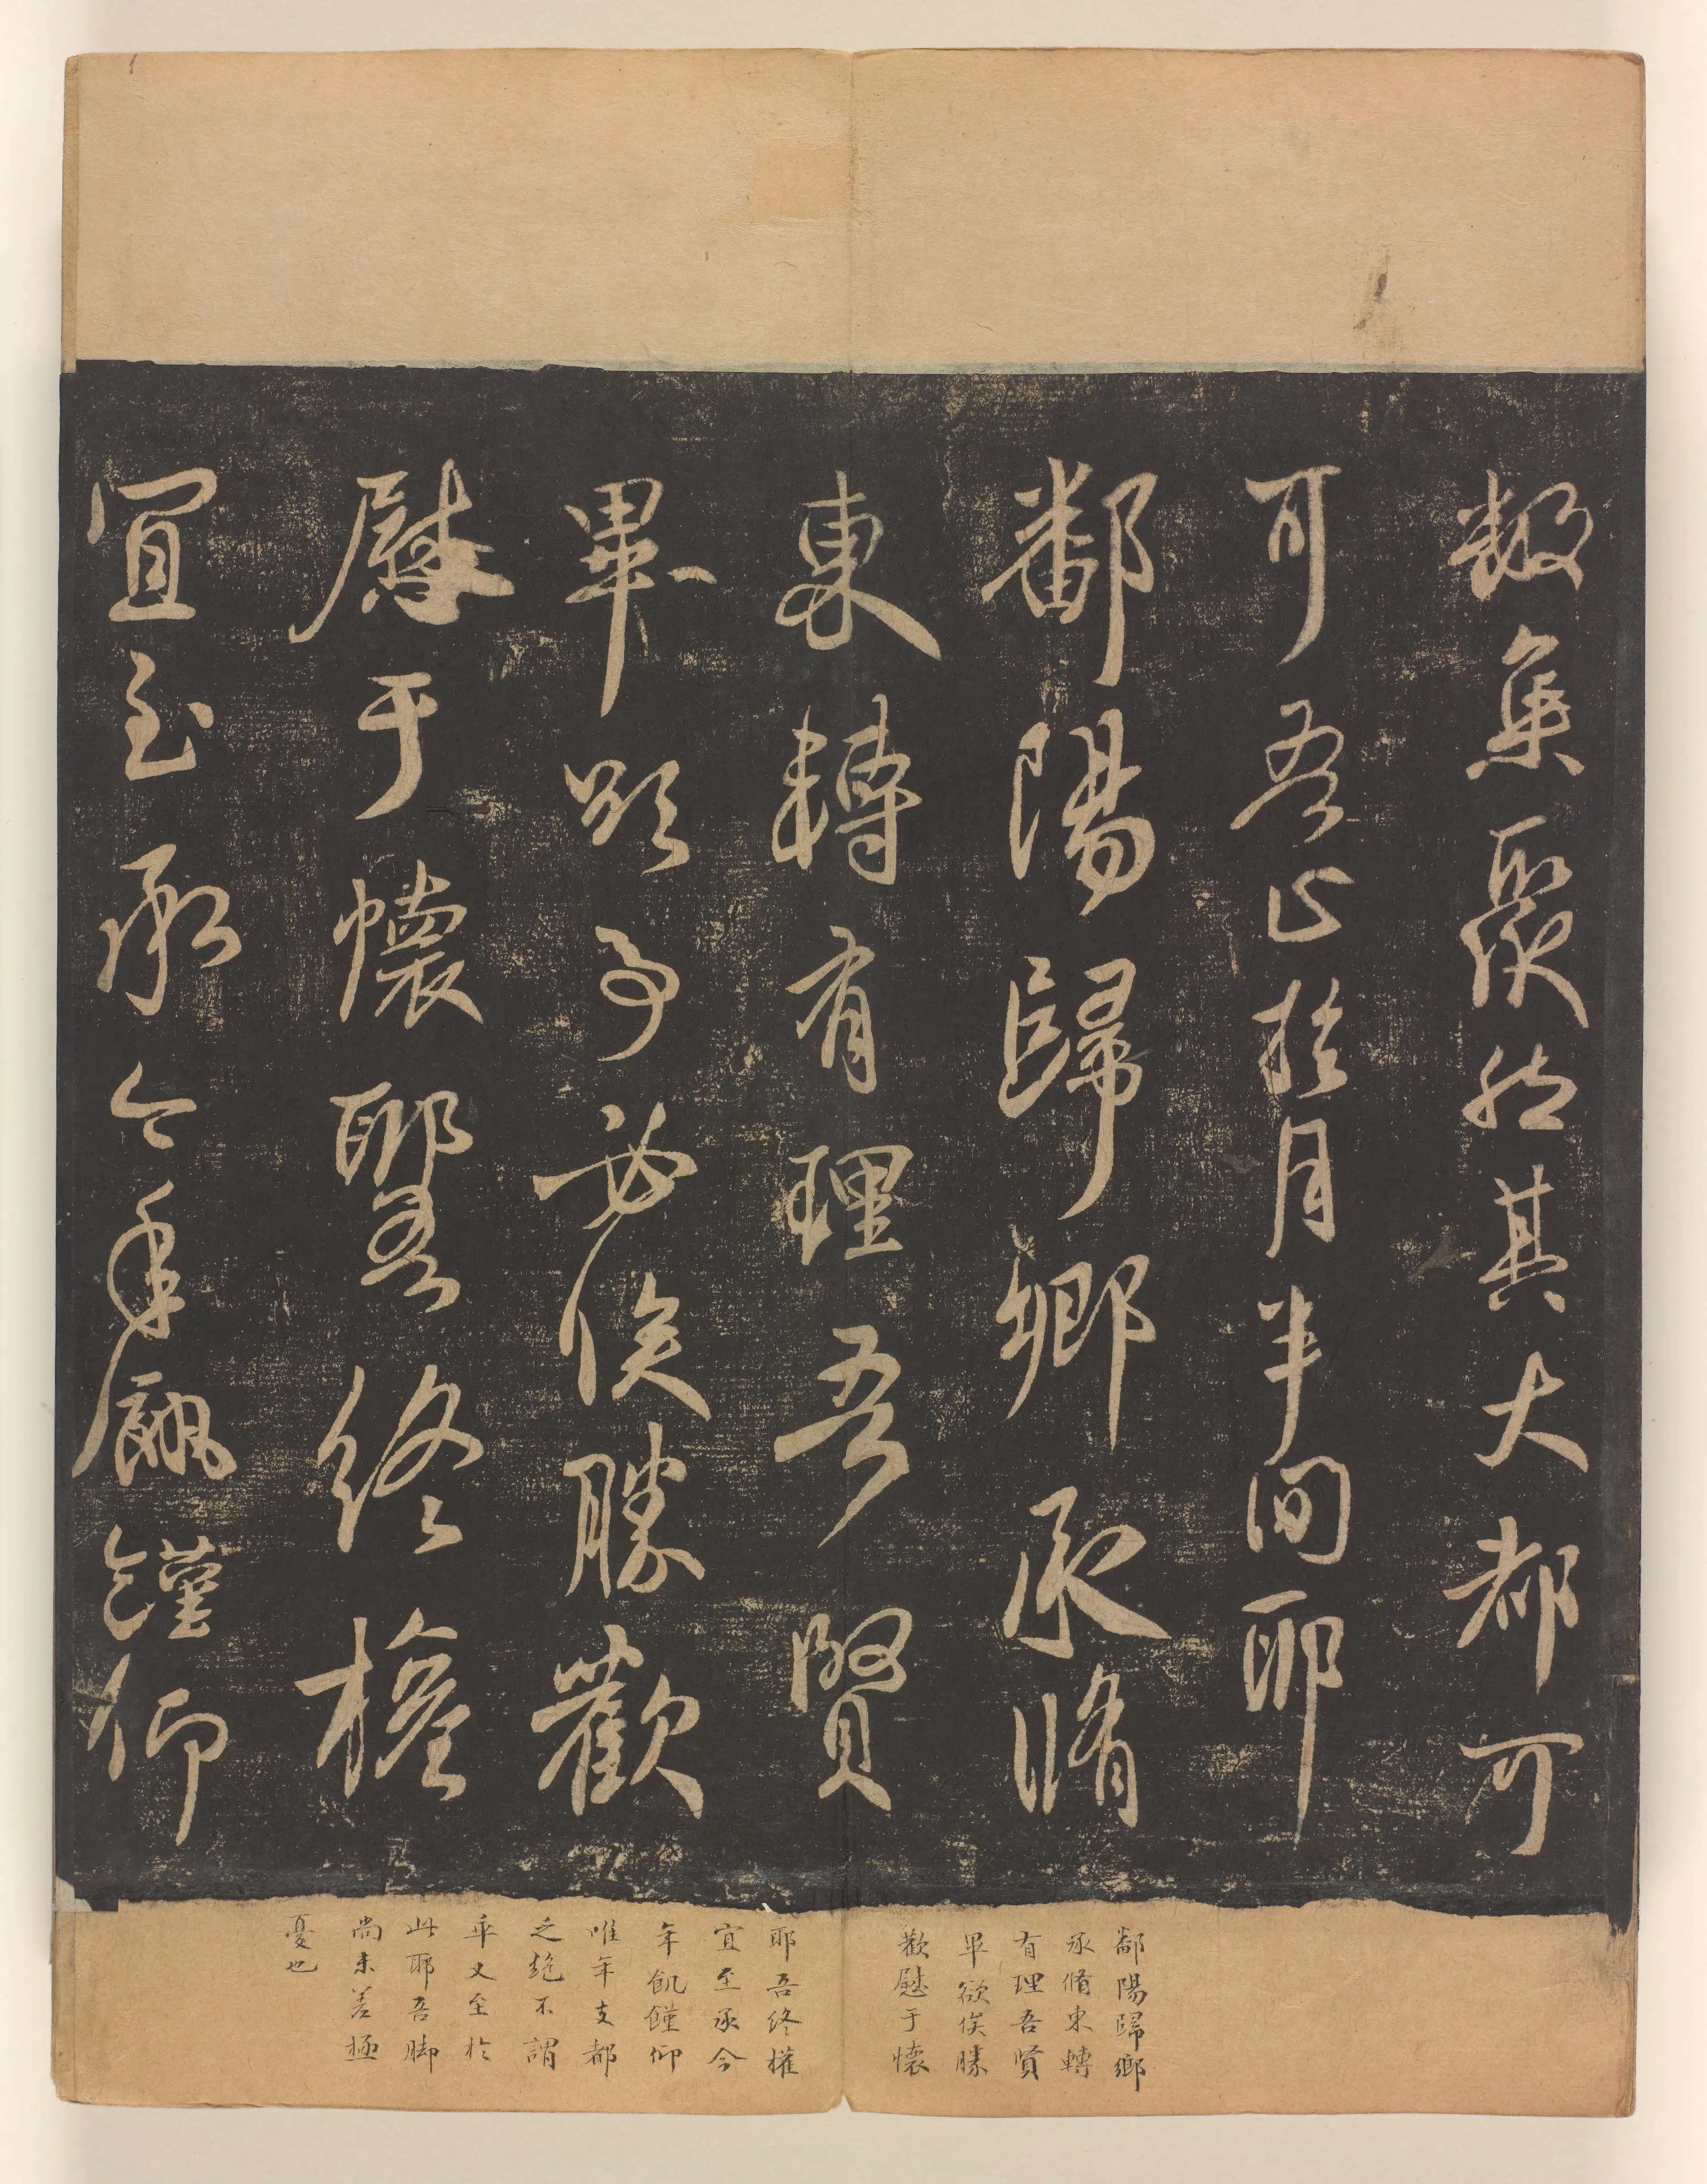 數集聚然其大都可
可吾正於月半間耶
鄱陽歸鄉承脩
東轉有理吾賢
畢欲事必俟勝歡
慰于懷耶吾終㩁
宜至承今年飢饉仰
鄱陽歸鄉
承脩東轉
有理吾賢
畢欲俟勝
歡慰于懷
耶吾終㩁
宜至承今
年飢饉仰
唯年支都
乏絕不謂
乖又至於
此耶吾脚
尚未差極
憂也